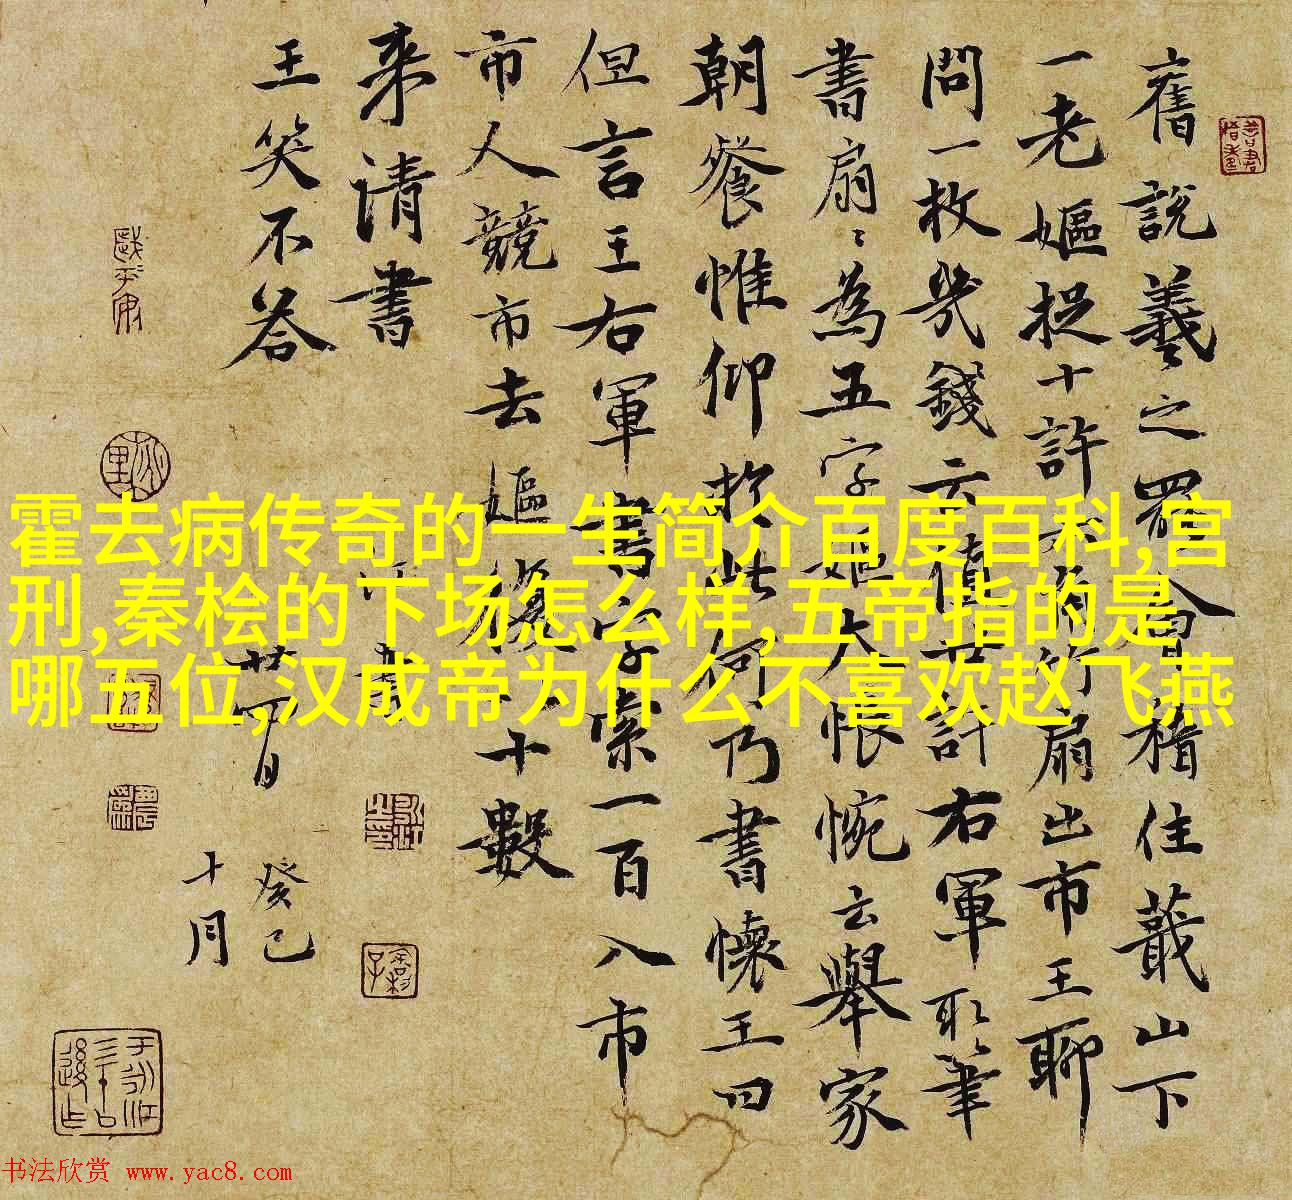 舊說羲之罷會稽住蕺山下
一老嫗捉十許角竹扇出市王聊
問一枚幾錢云值廿許右軍取筆
書扇〻為五字嫗大悵惋云舉家
朝餐惟仰於此何乃書懷王曰
但言王右軍書字索一百入市
市人競市去嫗復十數
来請書
王笑不答
癸巳
十月
霍去病传奇的一生简介百度百科,宫
刑,秦桧的下场怎么样,五帝指的是
哪五位,汉成帝为什么不喜欢赵飞燕
书法欣赏 www.yac8.com